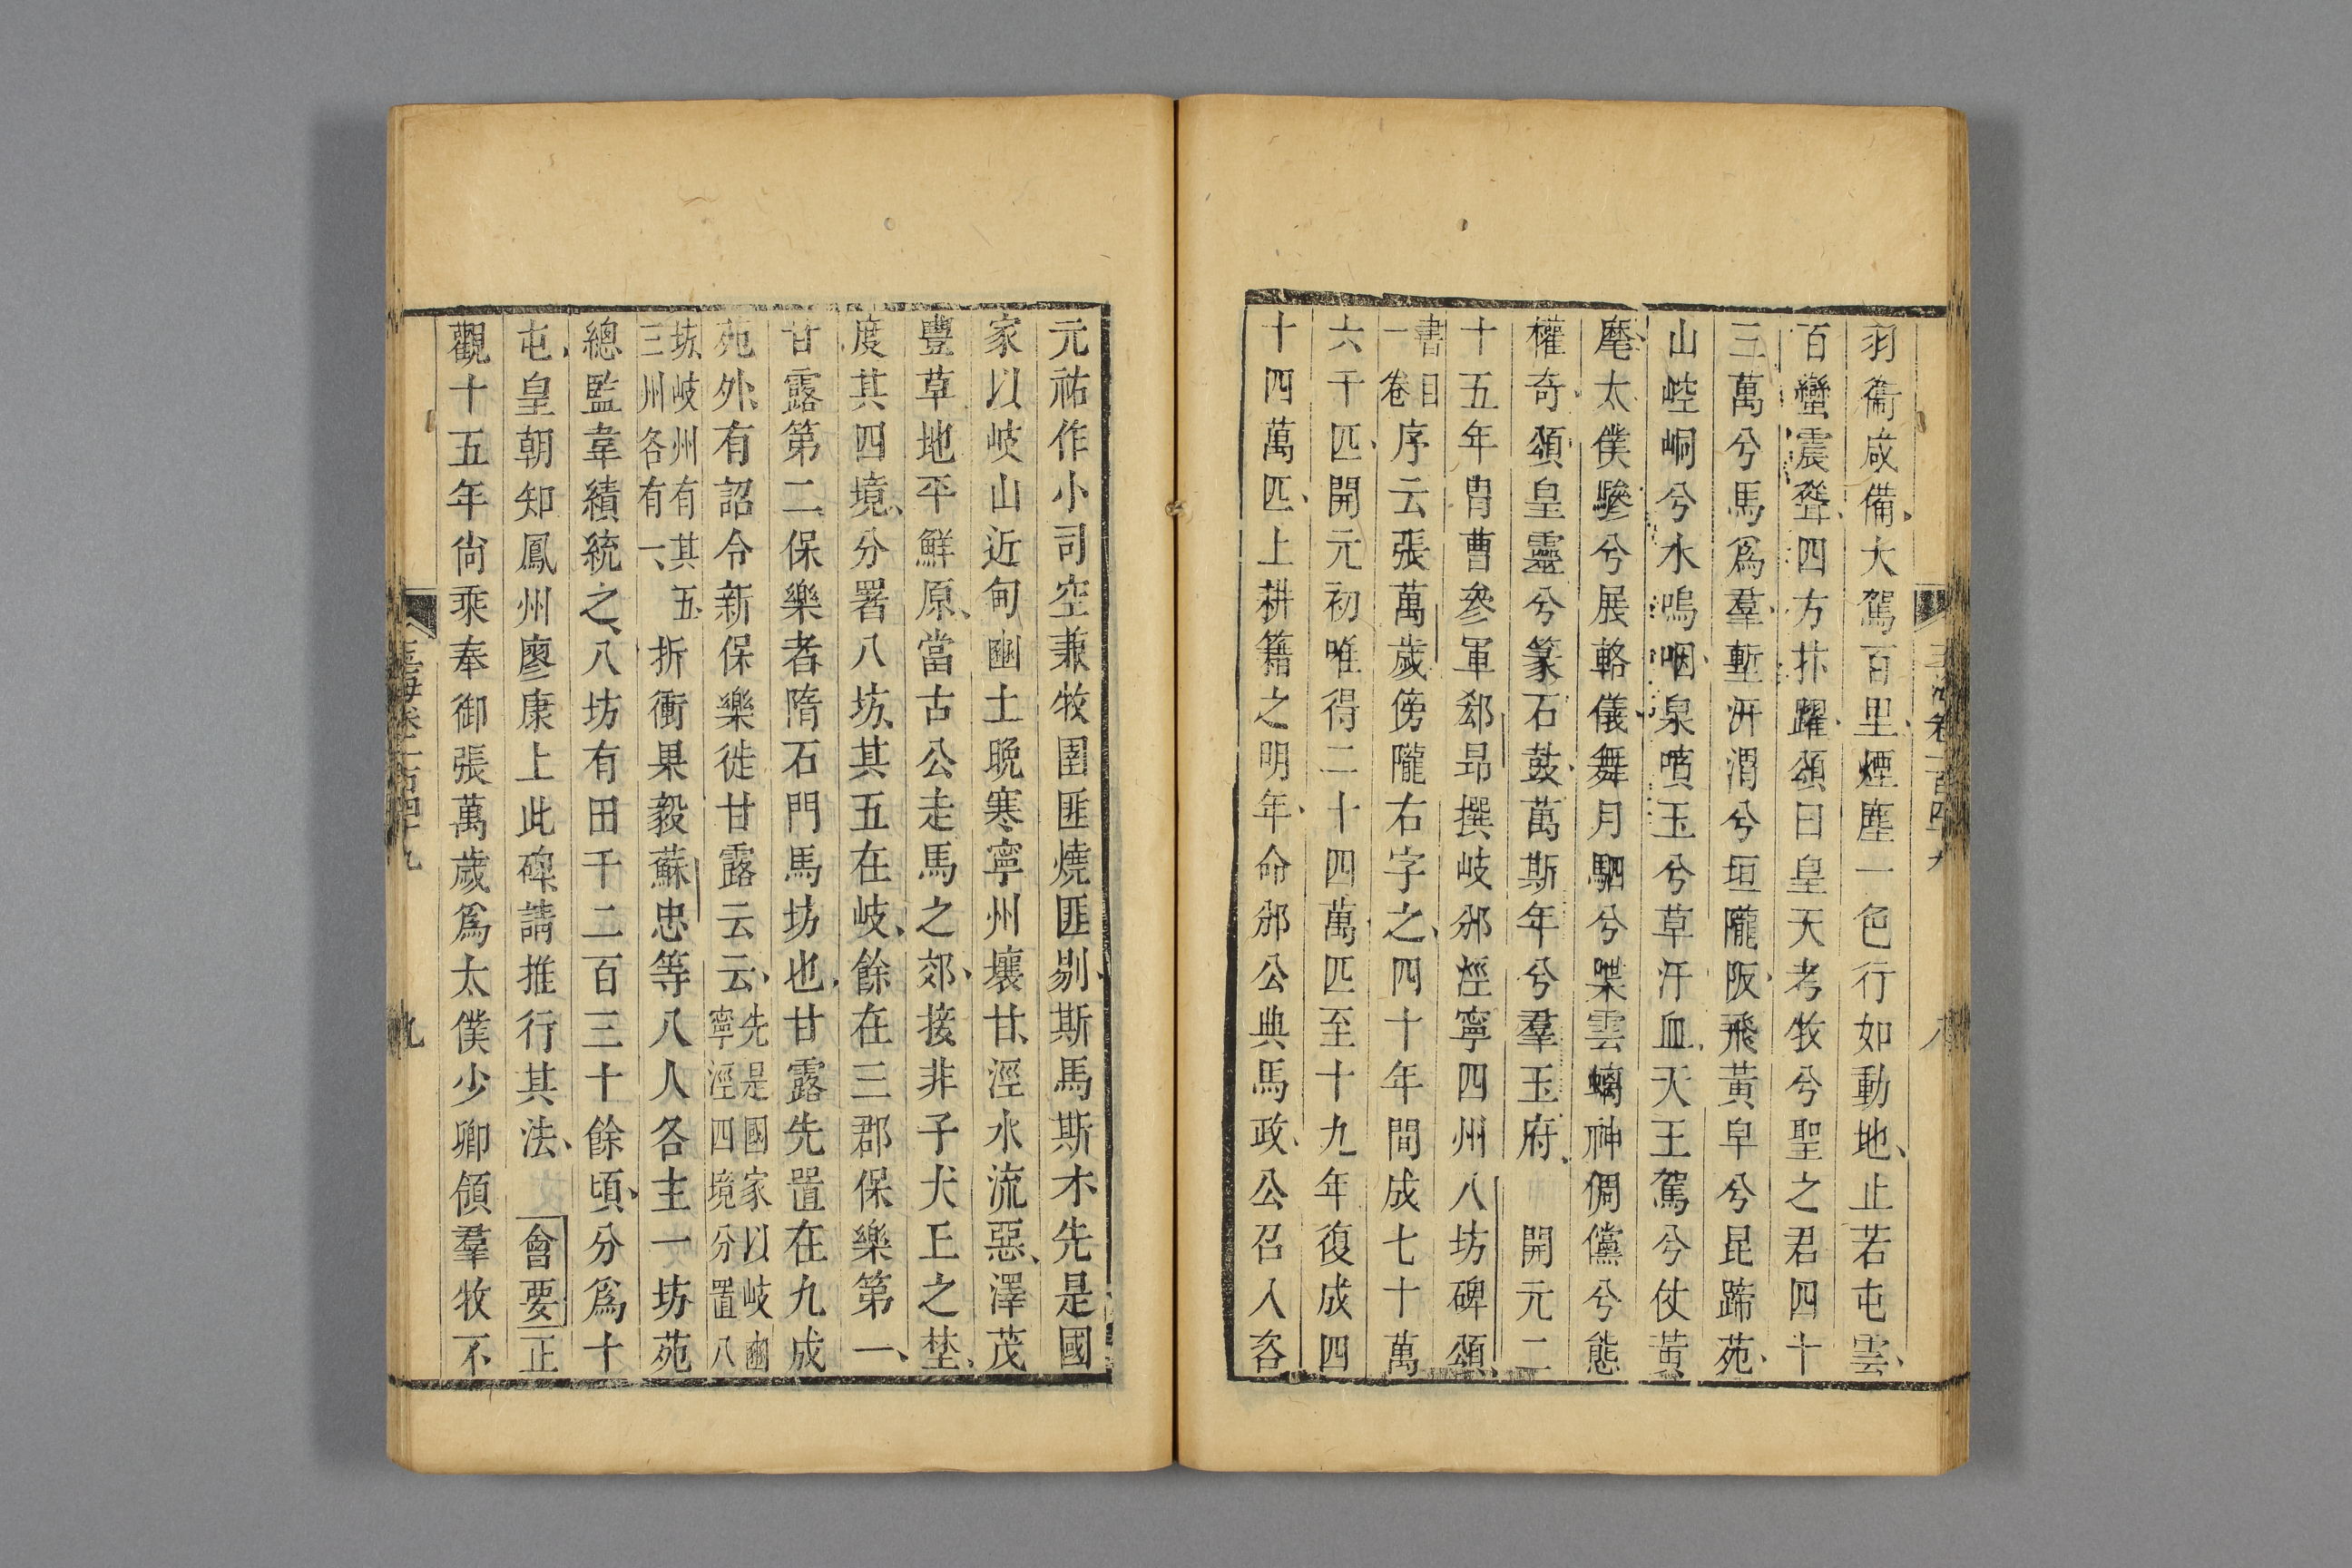 羽衞咸備大駕百里煙塵一色行如動地止若屯雲
百蠻震聳四方抃躍頌曰皇天考牧兮聖之君四十
三萬兮馬爲羣塹汧渭兮垣隴阪飛黃皁兮昆蹄苑
山崆峒兮水嗚咽泉噴玉兮草汗血天王駕兮仗黃
麾太僕驂兮展軨儀舞月駟兮𨅖雲螭神倜儻兮態
權奇頌皇靈兮篆石鼓萬斯年兮羣玉府 開元二
十五年胄曹參軍郄昂撰岐邠涇寧四州八坊碑頌
書目
一卷
序云張萬歲傍隴右字之四十年間成七十萬
六千匹開元初唯得二十四萬匹至十九年復成四
十四萬匹上耕籍之明年命邠公典馬政公召人咨
元祐作小司空兼牧圉匪燒匪剔斯馬斯木先是國
家以岐山近甸豳土晚寒寧州壤甘涇水流惡澤茂
豐草地平鮮原當古公走馬之郊接非子犬丘之埜
度其四境分署八坊其五在岐餘在三郡保樂第一
甘露第二保樂者隋石門馬坊也甘露先置在九成
苑外有詔令新保樂徙甘露云云
先是國家以岐豳
寧涇四境分置八
坊岐州有其五
三州各有一
折衝果毅蘇忠等八人各主一坊苑
總監韋績統之八坊有田千二百三十餘頃分爲十
屯皇朝知鳳州廖康上此碑請推行其法 會要正
觀十五年尙乘奉御張萬歲爲太僕少卿領羣牧不
玉海卷一百四十九 九